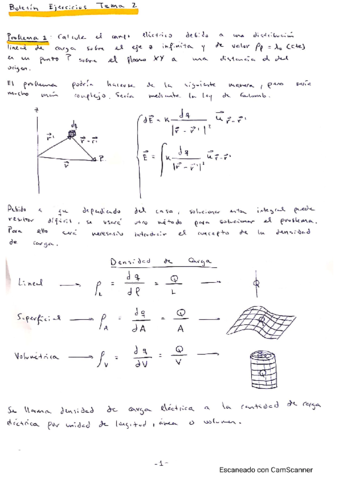 Boletín Ejercicios Tema 2
Problema 1: Calcule el campo eléctrico debido a una distribución
lineal de carga sobre el eje z infinita y de valor ρl = λ0 (cte)
en un punto P sobre el plano XY a una distancia d del
origen.
El problema podría hacerse de la siguiente manera, pero sería
mucho más complejo. Sería mediante la ley de Coulomb.
z
dq
r⃗'
r⃗ - r⃗'
r⃗
P
dE⃗ = K dq / |r⃗ - r⃗'|² u⃗ r⃗-r⃗'
E⃗ = ∫ K dq / |r⃗ - r⃗'|² u⃗ r⃗-r⃗'
Debido a que dependiendo del caso, solucionar esta integral puede
resultar difícil, se usará otro método para solucionar el problema.
Para ello será necesario introducir el concepto de la densidad
de carga.
Densidad de Carga
Lineal → ρL = dq/dl = Q/L →
Superficial → ρA = dq/dA = Q/A →
Volumétrica → ρV = dq/dV = Q/V →
Se llama densidad de carga eléctrica a la cantidad de carga
eléctrica por unidad de longitud, área o volumen.
-1-
Escaneado con CamScanner